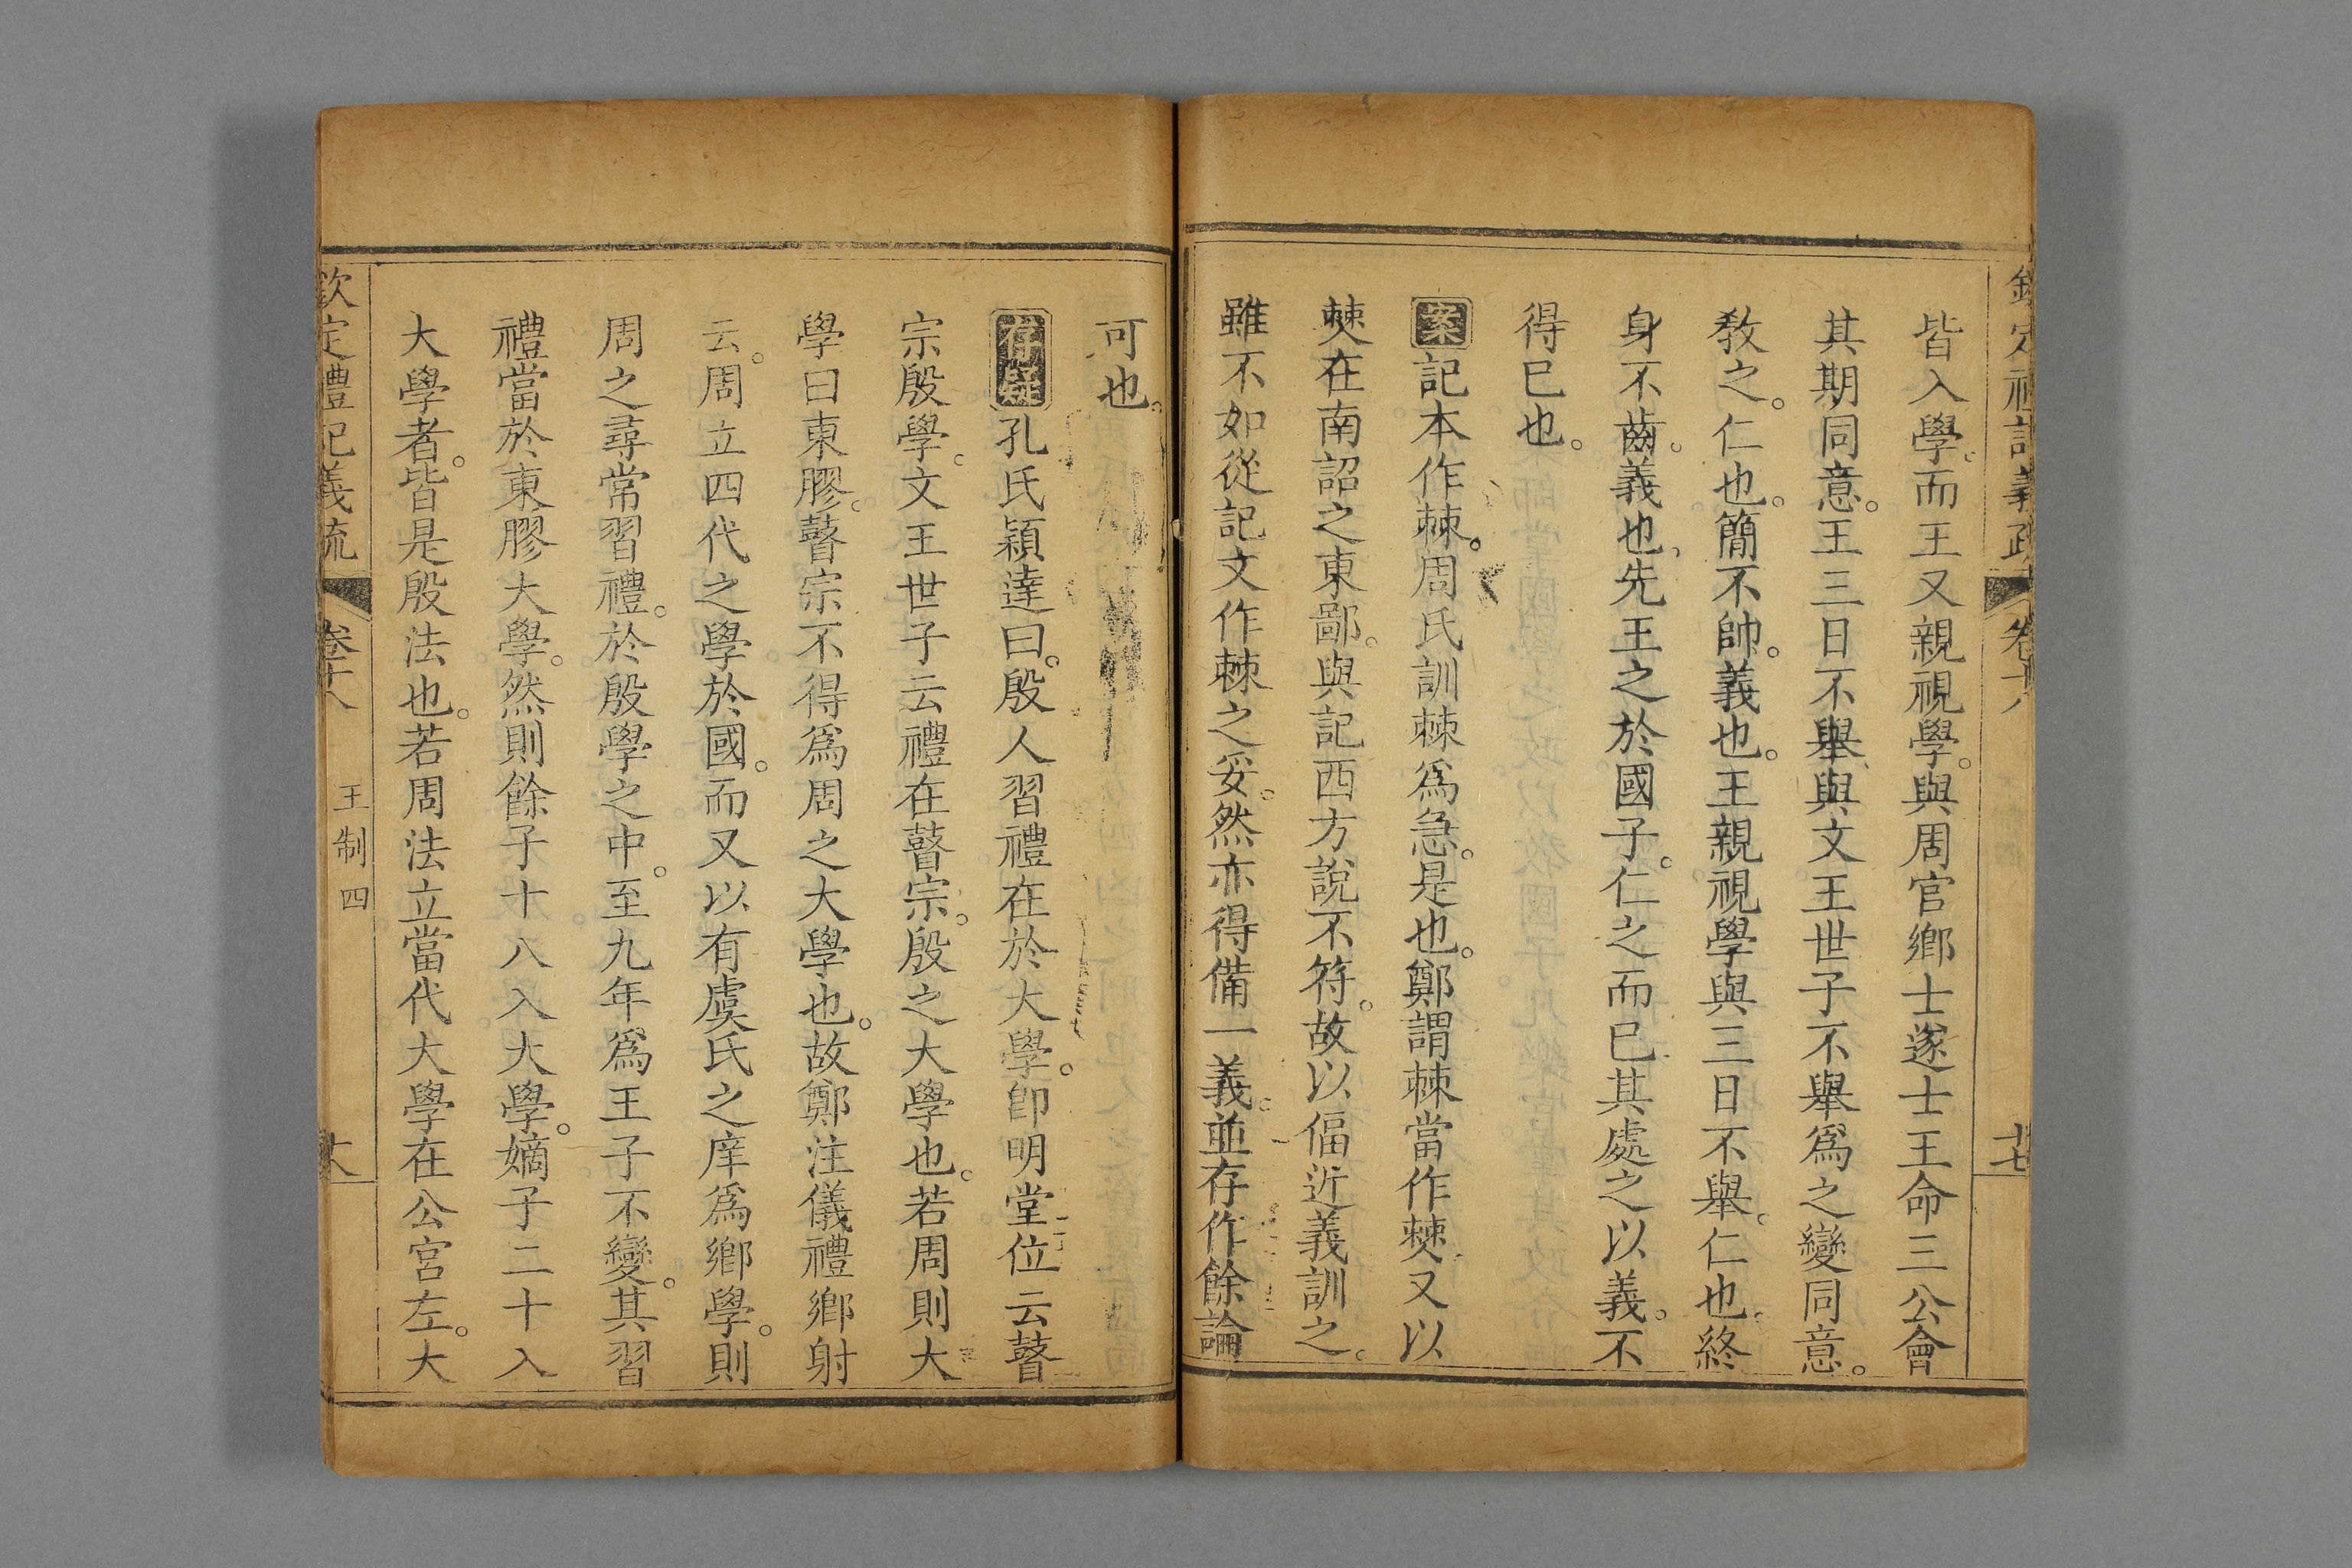 欽定禮記義疏 卷十八 十七
皆入學。而王又親視學。與周官鄉士遂士王命三公會
其期同意。王三日不舉。與文王世子不舉爲之變同意。
教之。仁也。簡不帥。義也。王親視學與三日不舉。仁也。終
身不齒。義也。先王之於國子。仁之而已。其處之以義。不
得已也。
案記本作棘。周氏訓棘爲急。是也。鄭謂棘當作僰。又以
僰在南詔之東鄙。與記西方說不符。故以偪近義訓之。
雖不如從記文作棘之妥。然亦得備一義。並存作餘論
可也。
存疑孔氏穎達曰。殷人習禮在於大學。卽明堂位云瞽
宗殷學。文王世子云禮在瞽宗。殷之大學也。若周則大
學曰東膠。瞽宗不得爲周之大學也。故鄭注儀禮鄉射
云。周立四代之學於國。而又以有虞氏之庠爲鄉學。則
周之尋常習禮。於殷學之中。至九年爲王子不變。其習
禮當於東膠大學。然則餘子十八入大學。嫡子二十入
大學者。皆是殷法也。若周法立當代大學在公宮左。大
欽定禮記義疏 卷十八 王制四 大